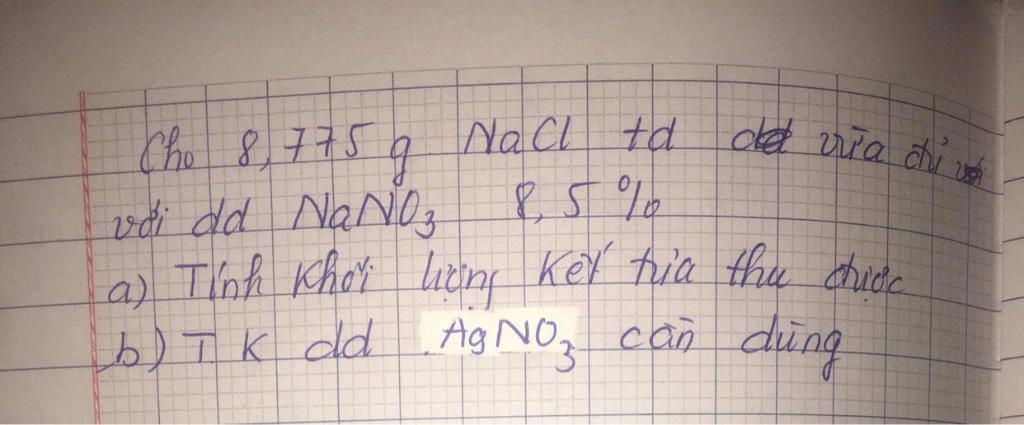 Cho 8,775 g NaCl td vừa đủ
với dd NaNO3 8,5%
a) Tính khối lượng kết tủa thu được
b) T K dd AgNO3 cần dùng